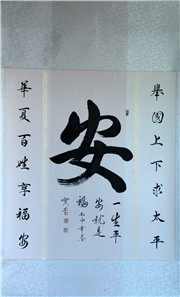 舉國上下求太平
安
一生平
安就是
福
華夏百姓享福安